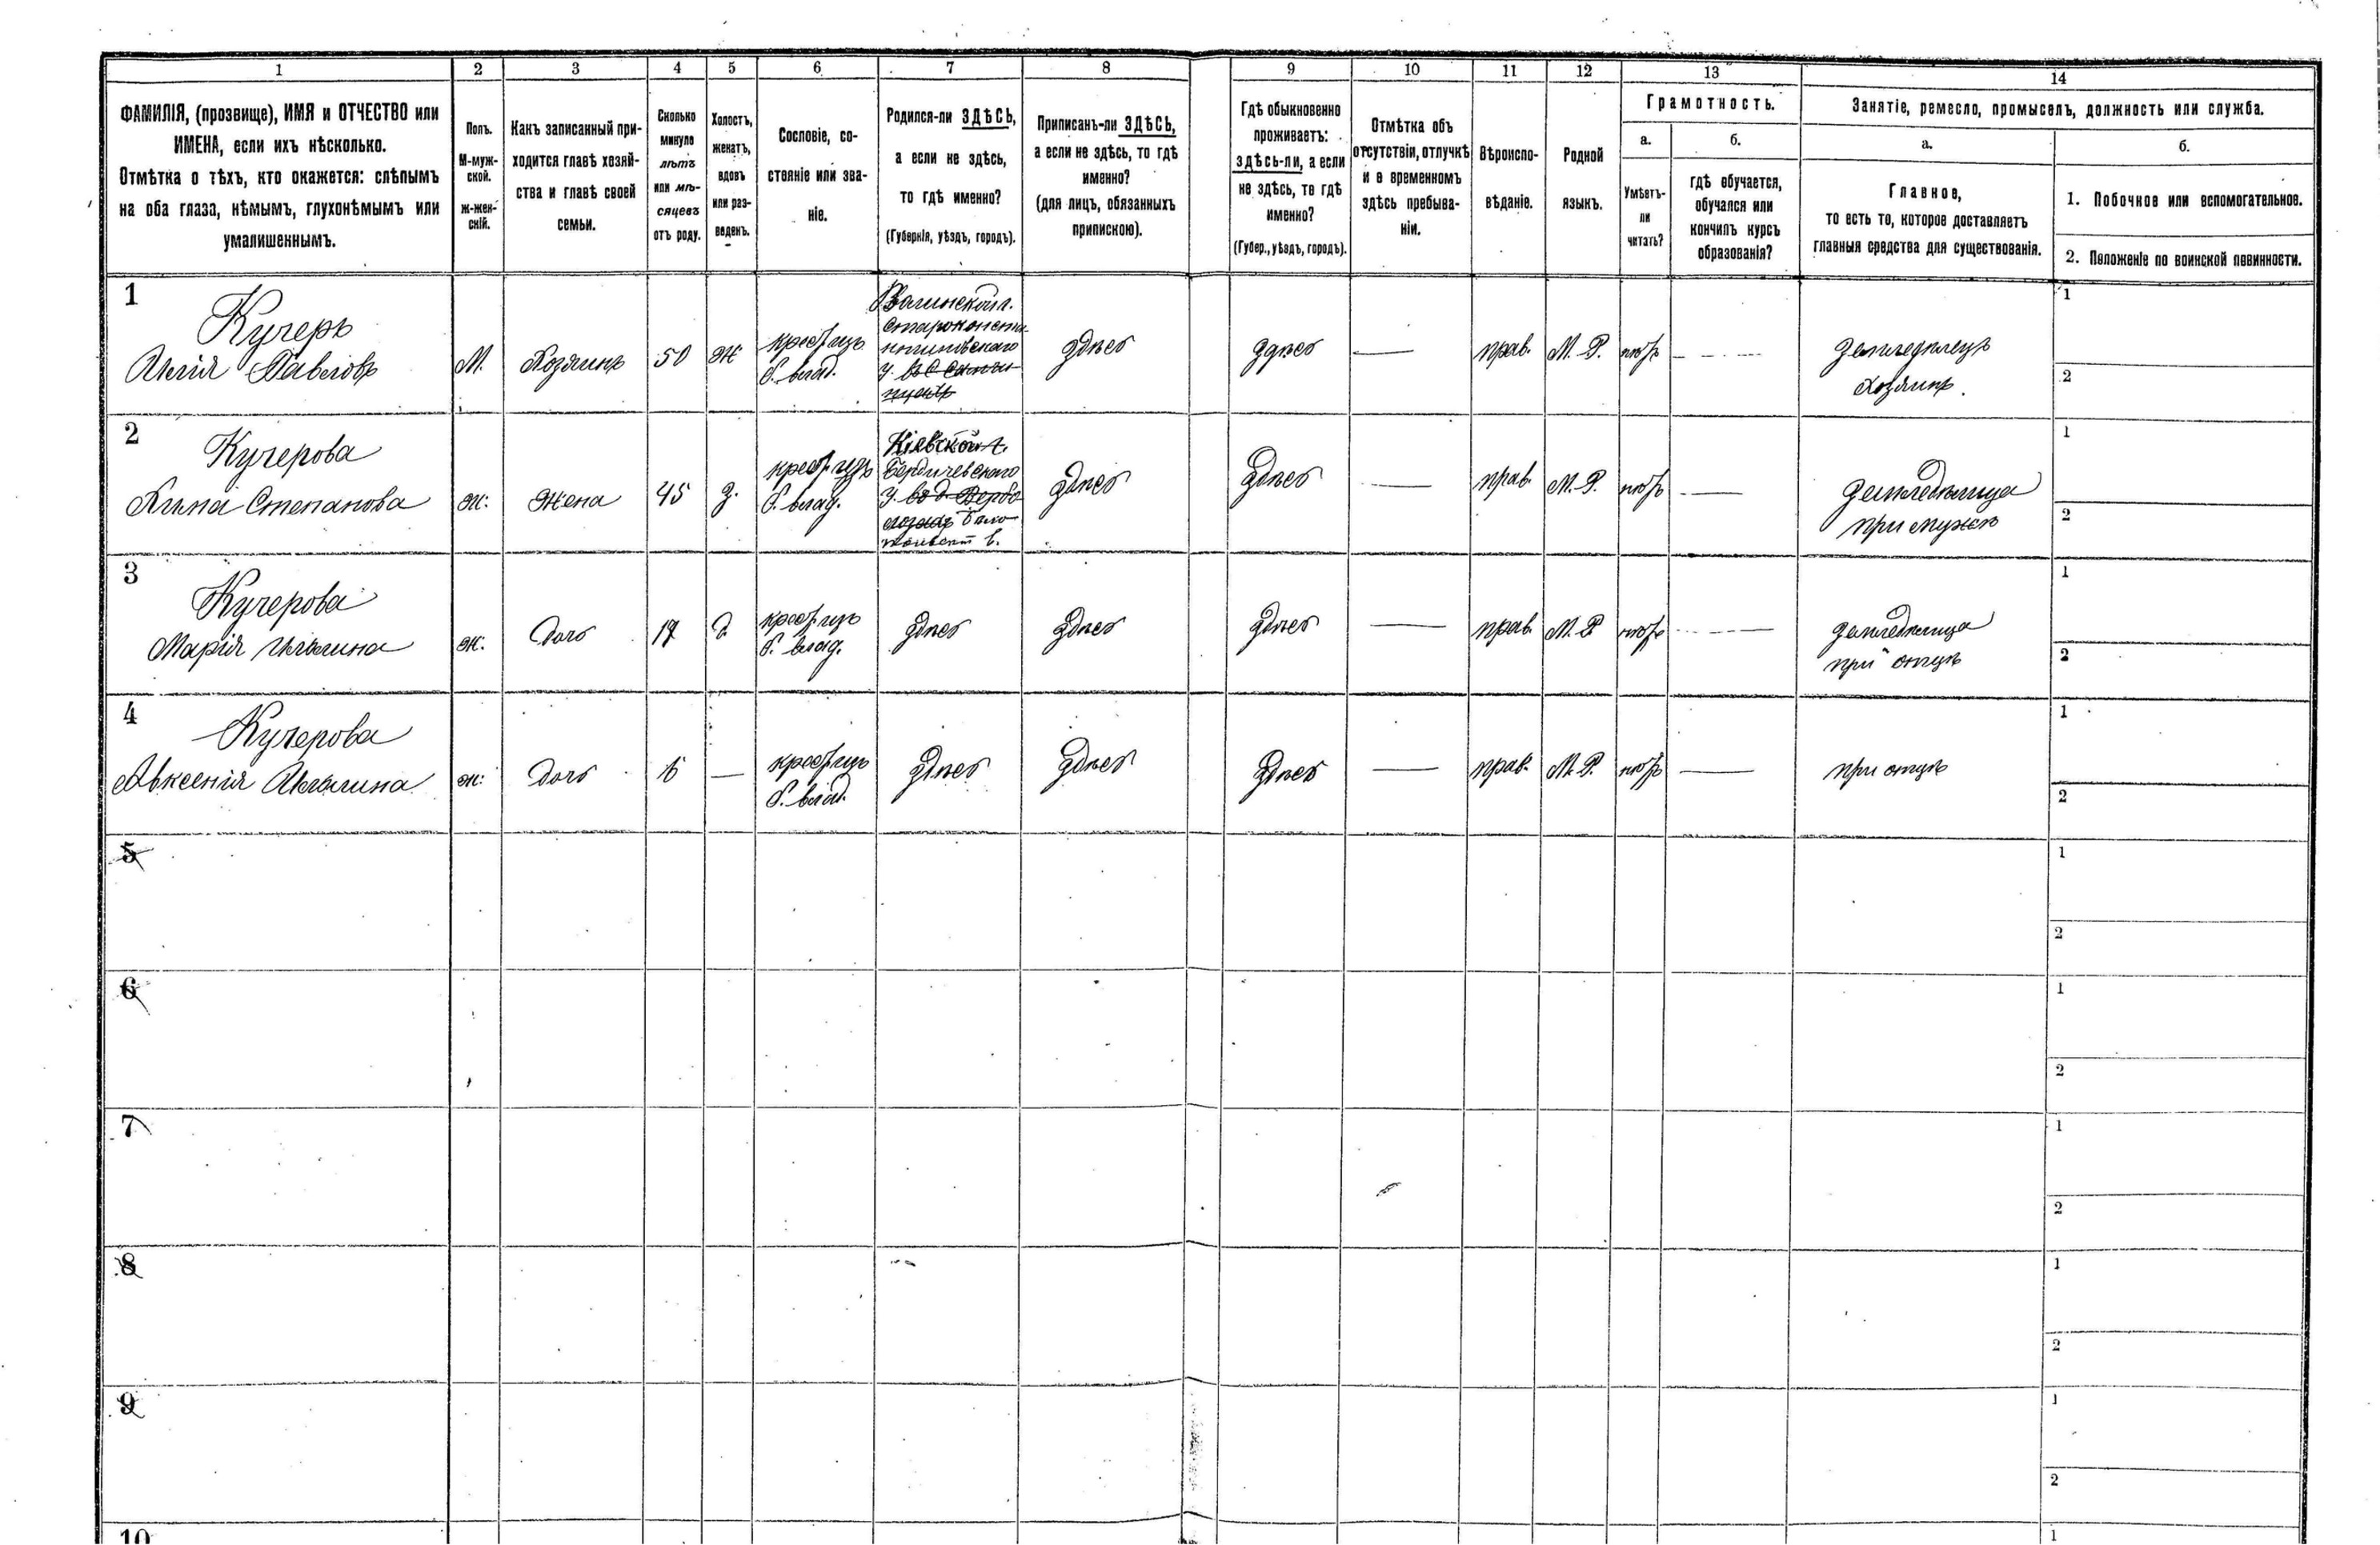 1 2 3 4 5 6 7 8 9 10 11 12 13 14
ФАМИЛІЯ, (прозвище), ИМЯ и ОТЧЕСТВО или
ИМЕНА, если ихъ нѣсколько.
Отмѣтка о тѣхъ, кто окажется: слѣпымъ
на оба глаза, нѣмымъ, глухонѣмымъ или
умалишеннымъ.
Полъ.
М-муж-
ской.
ж-жен-
скій.
Какъ записанный при-
ходится главѣ хозяй-
ства и главѣ своей
семьи.
Сколько
минуло
лѣтъ
или мѣ-
сяцевъ
отъ роду.
Холостъ,
женатъ,
вдовъ
или раз-
веденъ.
Сословіе, со-
стояніе или зва-
ніе.
Родился-ли ЗДѢСЬ,
а если не здѣсь,
то гдѣ именно?
(Губернія, уѣздъ, городъ).
Приписанъ-ли ЗДѢСЬ,
а если не здѣсь, то гдѣ
именно?
(для лицъ, обязанныхъ
припискою).
Гдѣ обыкновенно
проживаетъ:
здѣсь-ли, а если
не здѣсь, то гдѣ
именно?
(Губер., уѣздъ, городъ).
Отмѣтка объ
отсутствіи, отлучкѣ
и о временномъ
здѣсь пребыва-
ніи.
Вѣроиспо-
вѣданіе.
Родной
языкъ.
Грамотность.
а.
Умѣетъ-
ли
читать?
б.
гдѣ обучается,
обучался или
кончилъ курсъ
образованія?
Занятіе, ремесло, промыселъ, должность или служба.
а.
Главное,
то есть то, которое доставляетъ
главныя средства для существованія.
б.
1. Побочное или вспомогательное.
2. Положеніе по воинской повинности.
1
Кучеръ
Илія Павловъ
М.
Хозяинъ
50
ж
б. влад.
Волынской г.
Староконста-
нтиновскаго
у.
здѣсь
здѣсь
прав.
М. Р.
нѣтъ
земледѣлецъ
хозяинъ.
1
2
2
Кучерова
Степанова
ж.
жена
45
з.
б. влад.
Кіевской г.
Бердичевскаго
у.
здѣсь
здѣсь
прав.
М. Р.
нѣтъ
земледѣлица
при мужѣ
1
2
3
Кучерова
Марія Ильина
ж.
дочь
17
д
б. влад.
здѣсь
здѣсь
здѣсь
прав.
М. Р.
нѣтъ
земледѣлица
при отцѣ
1
2
4
Кучерова
Авксенія Ильина
ж.
дочь
6
б. влад.
здѣсь
здѣсь
здѣсь
прав.
М. Р.
нѣтъ
при отцѣ
1
2
5
1
2
6
1
2
7
1
2
8
1
2
9
1
2
10
1